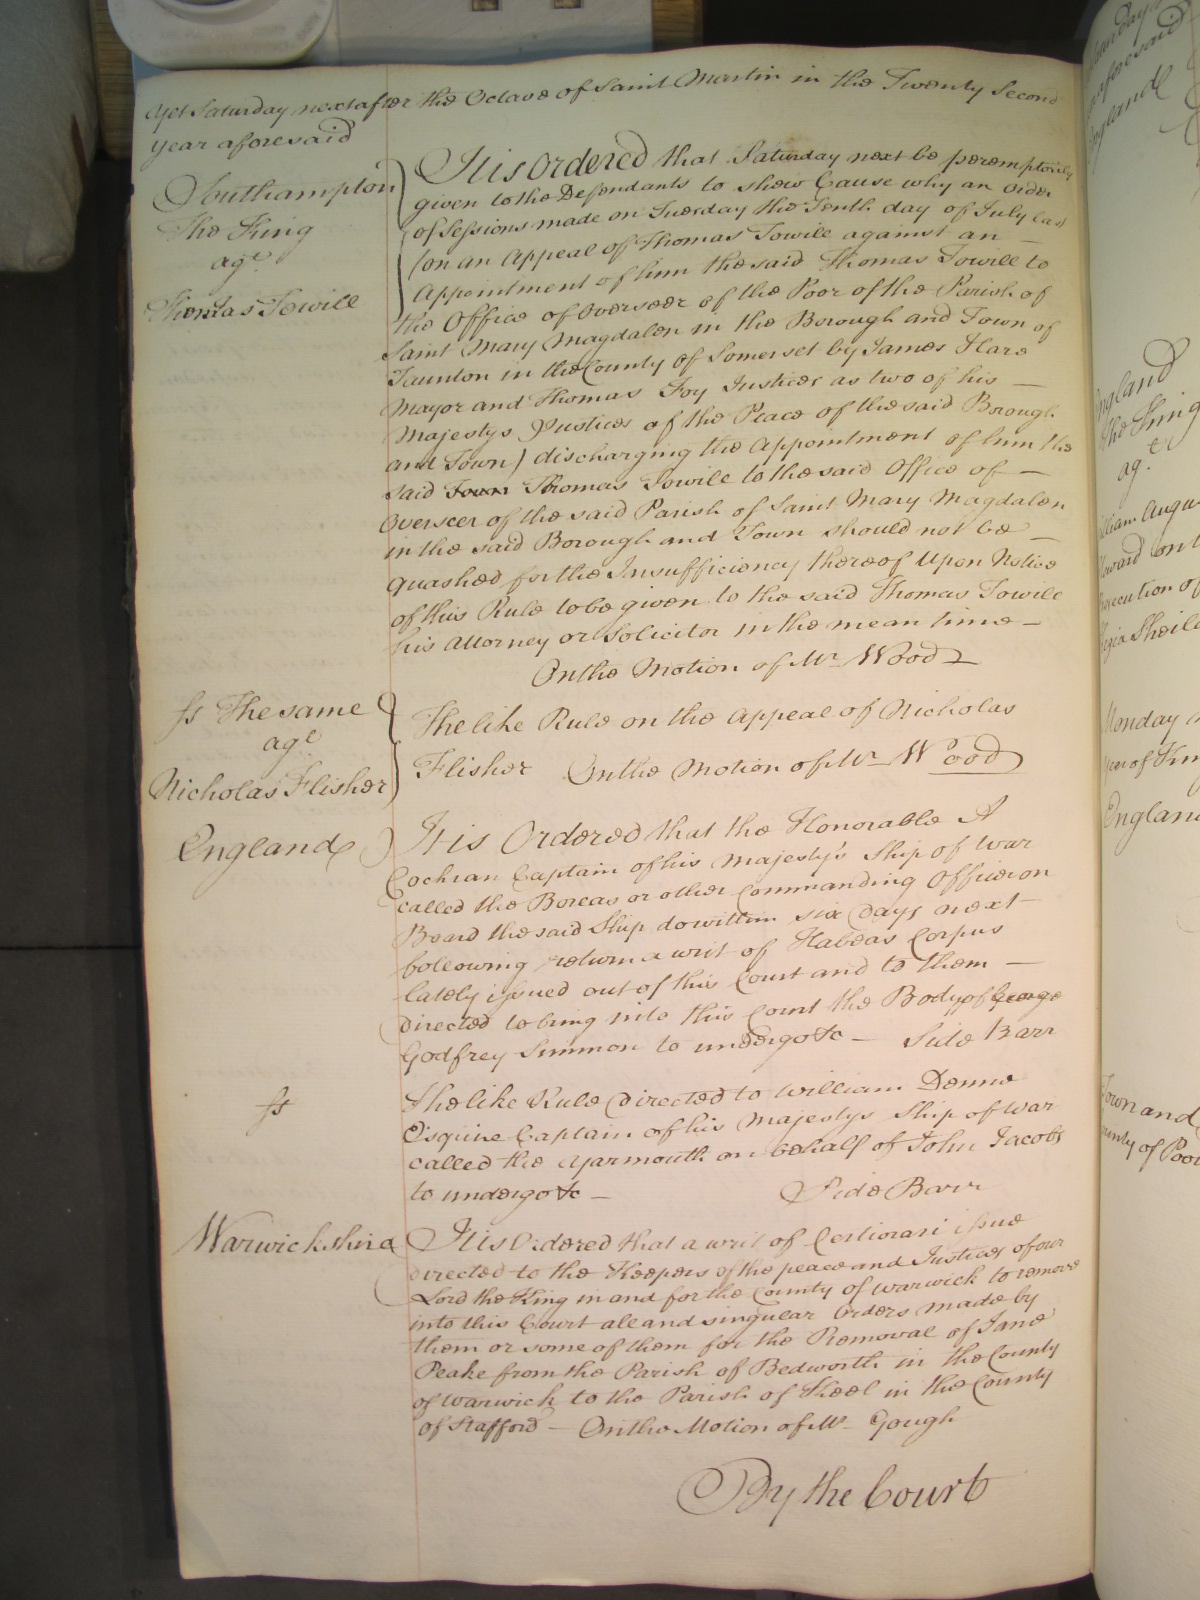 Yet Saturday next after the Octave of Saint Martin in the Twenty Second
year aforesaid
Southampton
The King
agt
Thomas Towill
It is Ordered that Saturday next be peremptorily
given to the Defendants to shew Cause why an Order
of Sessions made on Tuesday the Tenth day of July last
(on an Appeal of Thomas Towill against an —
Appointment of him the said Thomas Towill to
the Office of Overseer of the Poor of the Parish of
Saint Mary Magdalen in the Borough and Town of
Taunton in the County of Somerset by James Hare
Mayor and Thomas Foy Justices as two of his —
Majestys Justices of the Peace of the said Borough
and Town) discharging the Appointment of him the
said Town Thomas Towill to the said Office of —
Overseer of the said Parish of Saint Mary Magdalen
in the said Borough and Town should not be —
quashed for the Insufficiency thereof Upon Notice
of this Rule to be given to the said Thomas Towill
his Attorney or Solicitor in the mean time —
On the Motion of Mr Wood
Ss The same
agt
Nicholas Flisher
The like Rule on the Appeal of Nicholas
Flisher On the Motion of Mr Wood
England
It is Ordered that the Honorable A
Cochran Captain of his Majesty's Ship of War
called the Boreas or other Commanding Officer on
Board the said Ship do within six Days next
following return a writ of Habeas Corpus
lately issued out of this Court and to them —
directed to bring into this Court the Body of George
Godfrey Simmon to undergo &c — Side Barr
Ss
The like Rule directed to William Denne
Esquire Captain of his Majestys Ship of War
called the Yarmouth on behalf of John Jacobs
to undergo &c —
Side Barr
Warwickshire
It is Ordered that a writ of Certiorari issue
directed to the Keepers of the peace and Justices of our
Lord the King in and for the County of Warwick to remove
into this Court all and singular Orders made by
them or some of them for the Removal of Jane
Peake from the Parish of Bedworth in the County
of Warwick to the Parish of Keel in the County
of Stafford — On the Motion of Mr Gough
By the Court
England
The King
agt
Monday
England
Town and
County of Poo